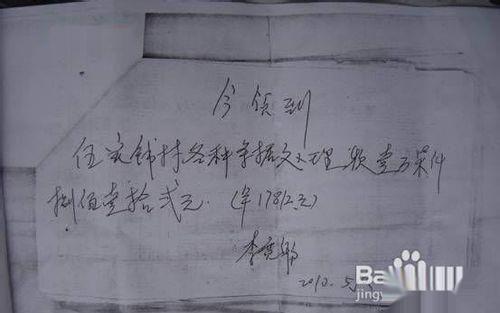 今领到
任家铺村各种字据交大理 款壹万柒仟
捌佰壹拾贰元. (¥17812元)
2010.5.
Bai
jing